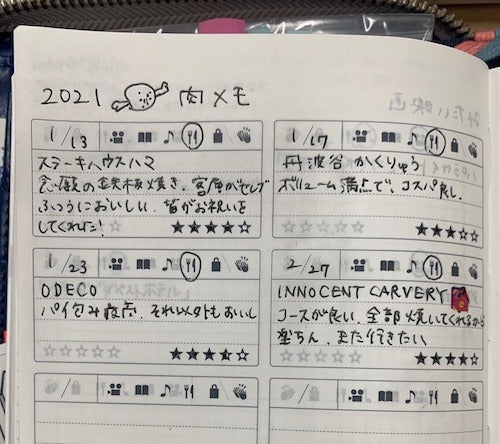 2021 肉メモ
1/13
ステーキハウスハマ
念願の鉄板焼き。宮崎がセレブ
ふつうにおいしい。皆がお祝いを
してくれた!
1/17
丹波谷 かくりゅう
ボリューム満点で、コスパ良し。
1/23
ODECO
パイ包み焼き、それ以外もおいし
2/27
INNOCENT CARVERY
コースが良い。全部焼いてくれるから
楽ちん。また行きたい
みたい映画